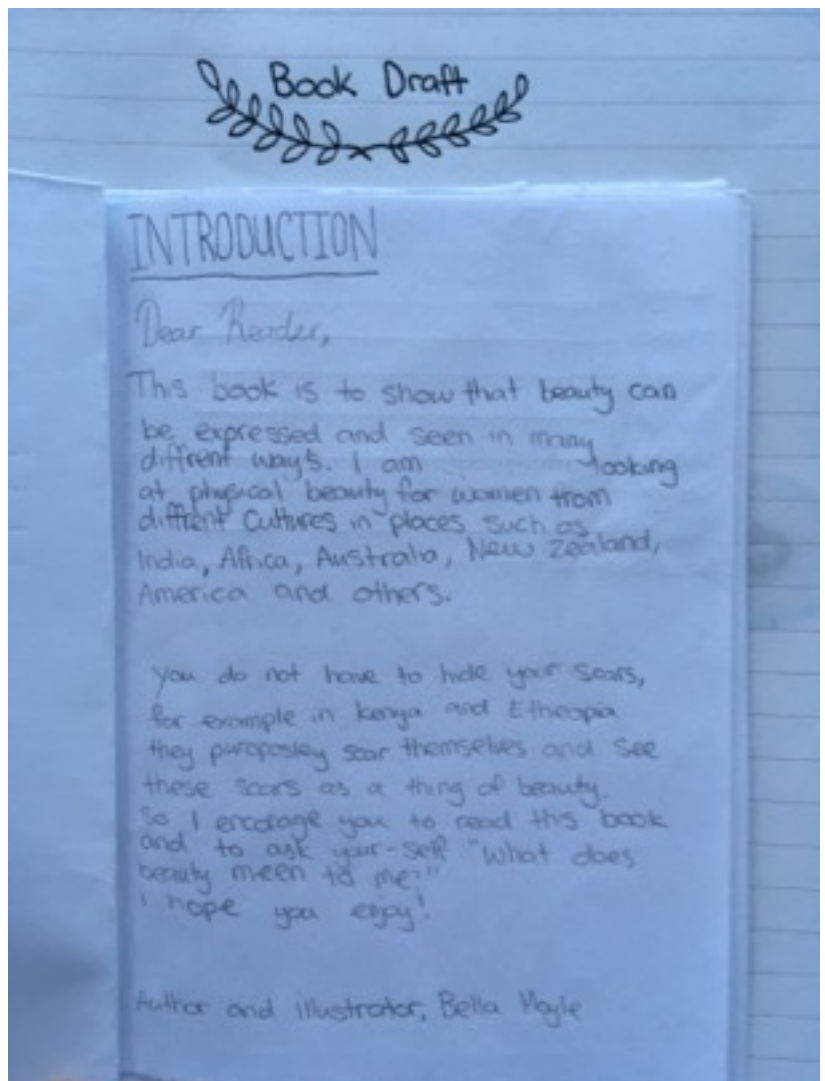 Book Draft
INTRODUCTION
Dear Reader,
This book is to show that beauty can
be expressed and seen in many
diffrent ways. I am looking
at physical beauty for women from
diffrent cultures in places such as
India, Africa, Australia, New Zealand,
America and others.
You do not have to hide your scars,
for example in Kenya and Etheopia
they puroposley scar themselves and see
these scars as a thing of beauty.
So I encorage you to read this book
and to ask your-self "What does
beauty meen to me?"
I hope you enjoy!
Author and illustrator, Bella Moyle